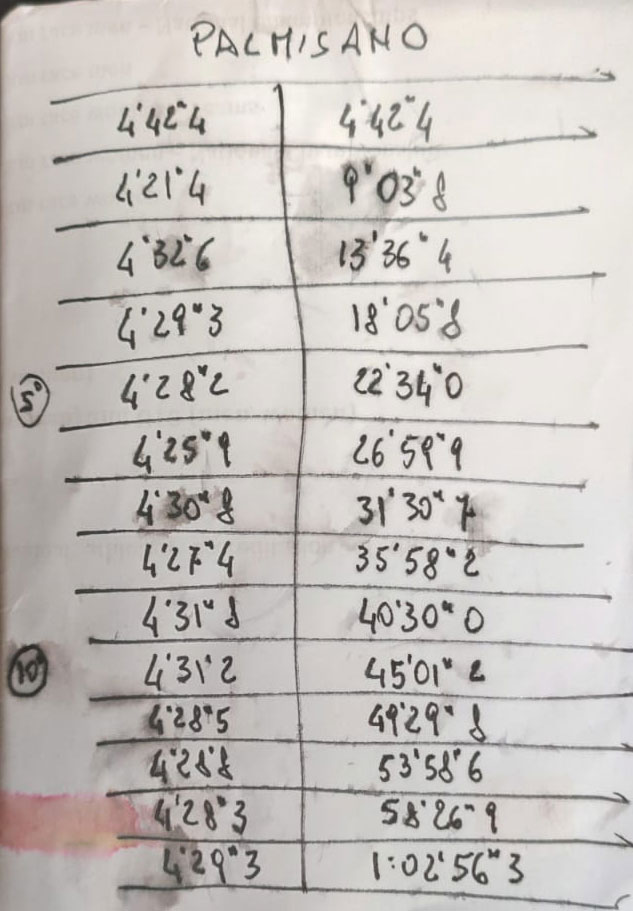 PALMISANO
4'42"4 4'42"4
4'21"4 9'03"8
4'32"6 13'36"4
4'29"3 18'05"8
5° 4'28"2 22'34"0
4'25"9 26'59"9
4'30"8 31'30"7
4'27"4 35'58"2
4'31"8 40'30"0
10° 4'31"2 45'01"2
4'28"5 49'29"8
4'28"8 53'58"6
4'28"3 58'26"9
4'29"3 1:02'56"3